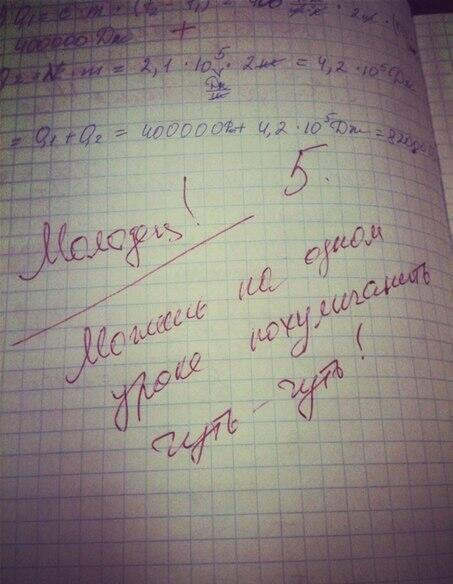 Q₁ = c · m · (t₂ - t₁) = 400
400000 Дж +
· m = 2,1 · 10⁵ · 2 кг = 4,2 · 10⁵ Дж
Дж
кг
= Q₁ + Q₂ = 400000 Дж + 4,2 · 10⁵ Дж = 8200
5.
Молодец!
Можешь на одном
уроке похулиганить
чуть-чуть!